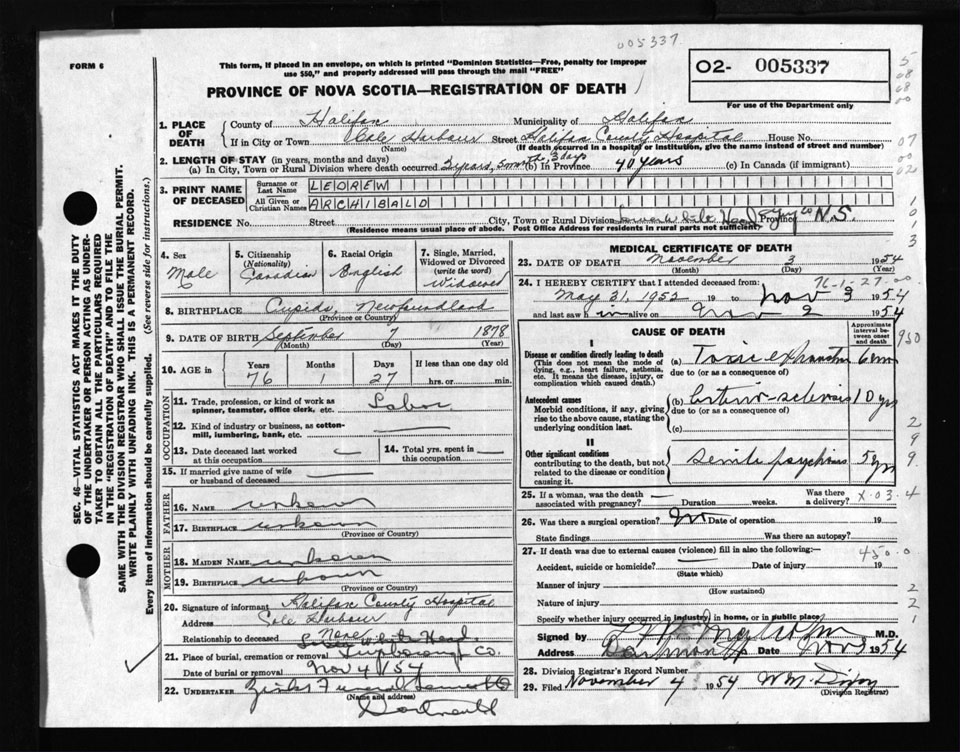 005337
FORM 6
This form, if placed in an envelope, on which is printed "Dominion Statistics—Free, penalty for improper
use $50," and properly addressed will pass through the mail "FREE"
O2- 005337
For use of the Department only
PROVINCE OF NOVA SCOTIA—REGISTRATION OF DEATH
1. PLACE OF DEATH
County of Halifax Municipality of Halifax
If in City or Town Cole Harbour Street Halifax County Hospital House No.
(Name) (If death occurred in a hospital or institution, give the name instead of street and number)
2. LENGTH OF STAY (in years, months and days)
(a) In City, Town or Rural Division where death occurred 2 years, 5 months, 3 days (b) In Province 40 years (c) In Canada (if immigrant)
3. PRINT NAME OF DECEASED
Surname or Last Name LEDREW
All Given or Christian Names ARCHIBALD
RESIDENCE No. Street City, Town or Rural Division Head Guy Co N.S.
(Residence means usual place of abode. Post Office Address for residents in rural parts not sufficient)
4. Sex
Male
5. Citizenship (Nationality)
Canadian
6. Racial Origin
English
7. Single, Married, Widowed or Divorced (write the word)
Widowed
8. BIRTHPLACE Cupids, Newfoundland
(Province or Country)
9. DATE OF BIRTH September 7 1878
(Month) (Day) (Year)
10. AGE in Years Months Days If less than one day old
76 1 27 hrs. or min.
OCCUPATION
11. Trade, profession, or kind of work as
spinner, teamster, office clerk, etc. Labor
12. Kind of industry or business, as cotton-
mill, lumbering, bank, etc.
13. Date deceased last worked
at this occupation
14. Total yrs. spent in
this occupation
15. If married give name of wife
or husband of deceased
FATHER
16. NAME unknown
17. BIRTHPLACE unknown
(Province or Country)
MOTHER
18. MAIDEN NAME unknown
19. BIRTHPLACE unknown
(Province or Country)
20. Signature of informant Halifax County Hospital
Address Cole Harbour
Relationship to deceased None
White Head
21. Place of burial, cremation or removal Co.
Date of burial or removal Nov 4/54
22. UNDERTAKER Funeral
(Name and address)
MEDICAL CERTIFICATE OF DEATH
23. DATE OF DEATH November 3 1954
(Month) (Day) (Year)
76-1-27-00
24. I HEREBY CERTIFY that I attended deceased from:
May 31, 1952 19 to Nov 3 1954
and last saw him alive on Nov 2 1954
CAUSE OF DEATH
Approximate interval between onset and death
I
Disease or condition directly leading to death
(This does not mean the mode of
dying, e.g., heart failure, asthenia,
etc. It means the disease, injury, or
complication which caused death.)
(a) Toxic exhaustion 6 mn
due to (or as a consequence of)
Antecedent causes
Morbid conditions, if any, giving
rise to the above cause, stating the
underlying condition last.
(b) Arterio-sclerosis 10 yrs
due to (or as a consequence of)
(c)
II
Other significant conditions
contributing to the death, but not
related to the disease or condition
causing it.
senile psychosis 5 yrs
25. If a woman, was the death
associated with pregnancy? Duration weeks. Was there
a delivery?
26. Was there a surgical operation? No Date of operation 19
State findings Was there an autopsy?
27. If death was due to external causes (violence) fill in also the following:—
450.0
Accident, suicide or homicide? Date of injury 19
(State which)
Manner of injury
(How sustained)
Nature of injury
Specify whether injury occurred in industry, in home, or in public place
Signed by M.D.
Address Dartmouth Date Nov 3 1954
28. Division Registrar's Record Number
29. Filed November 4 1954
(Division Registrar)
SEC. 46—VITAL STATISTICS ACT MAKES IT THE DUTY
OF THE UNDERTAKER OR PERSON ACTING AS UNDER-
TAKER TO OBTAIN ALL THE PARTICULARS REQUIRED
IN THE "REGISTRATION OF DEATH" AND TO FILE THE
SAME WITH THE DIVISION REGISTRAR WHO SHALL ISSUE THE BURIAL PERMIT.
WRITE PLAINLY WITH UNFADING INK. THIS IS A PERMANENT RECORD.
Every item of information should be carefully supplied. (See reverse side for instructions.)